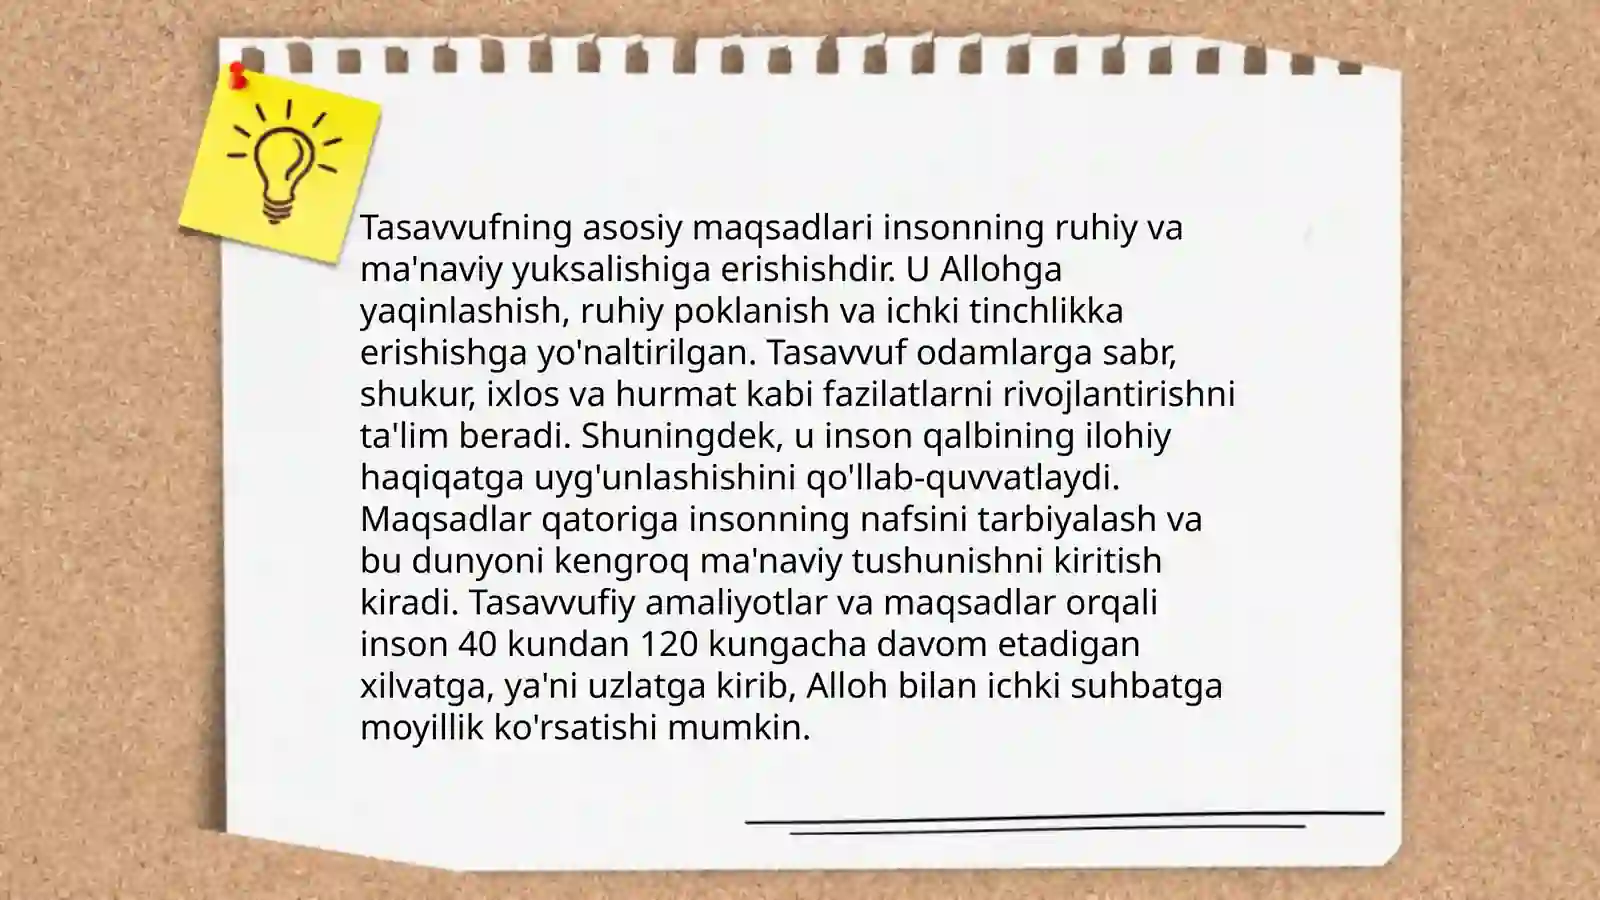 Tasavvufning asosiy maqsadlari insonning ruhiy va
ma'naviy yuksalishiga erishishdir. U Allohga
yaqinlashish, ruhiy poklanish va ichki tinchlikka
erishishga yo'naltirilgan. Tasavvuf odamlarga sabr,
shukur, ixlos va hurmat kabi fazilatlarni rivojlantirishni
ta'lim beradi. Shuningdek, u inson qalbining ilohiy
haqiqatga uyg'unlashishini qo'llab-quvvatlaydi.
Maqsadlar qatoriga insonning nafsini tarbiyalash va
bu dunyoni kengroq ma'naviy tushunishni kiritish
kiradi. Tasavvufiy amaliyotlar va maqsadlar orqali
inson 40 kundan 120 kungacha davom etadigan
xilvatga, ya'ni uzlatga kirib, Alloh bilan ichki suhbatga
moyillik ko'rsatishi mumkin.